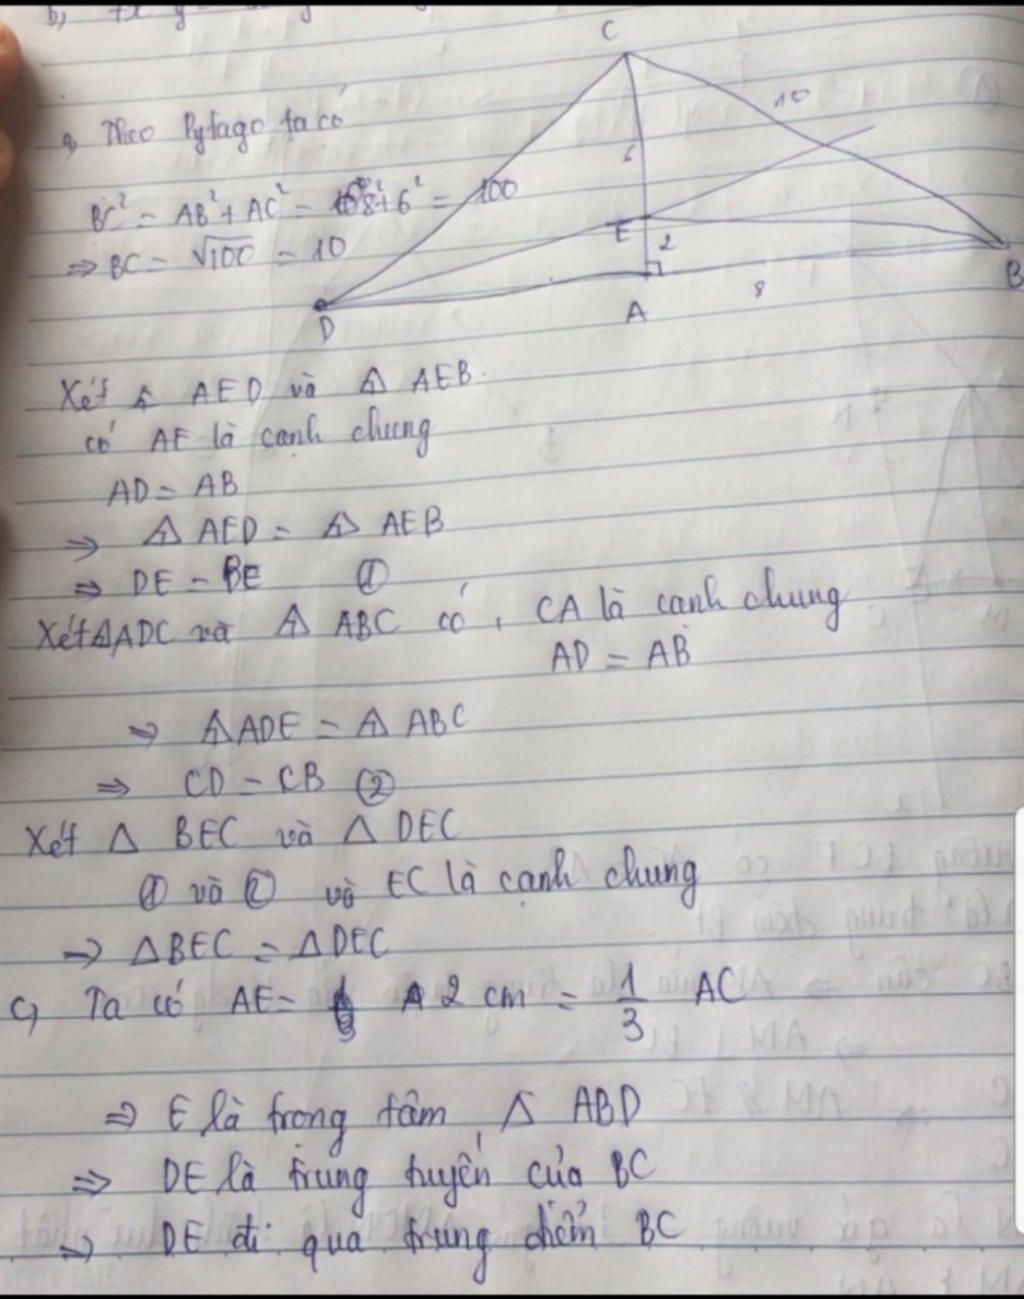 b,
C
10
a, Theo Pytago ta có
6
BC² = AB² + AC² = 8² + 6² = 100
E
2
⇒ BC = √100 = 10
B
8
D
A
Xét △ AED và △ AEB.
có AE là cạnh chung
AD = AB
⇒ △ AED = △ AEB
⇒ DE = BE ①
Xét △ADC và △ ABC có, CA là cạnh chung
AD = AB
⇒ △ADE = △ ABC
⇒ CD = CB ②
Xét △ BEC và △ DEC
① và ② và EC là cạnh chung
⇒ △BEC = △DEC
c, Ta có AE = 2 cm = 1/3 AC
⇒ E là trọng tâm △ ABD
⇒ DE là trung tuyến của BC
⇒ DE đi qua trung điểm BC